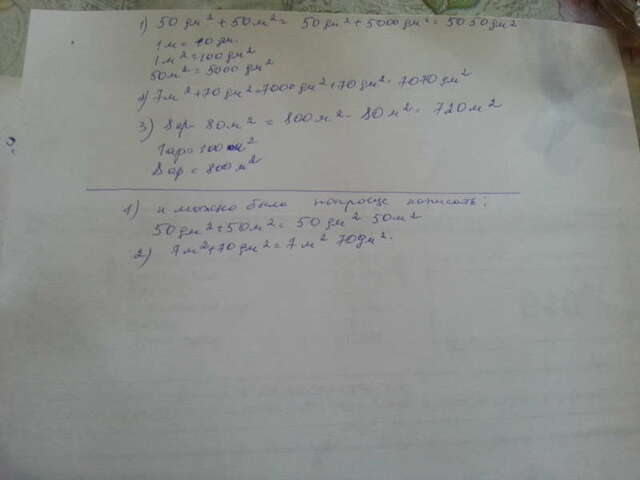 1) 50 дм² + 50 м² = 50 дм² + 5000 дм² = 5050 дм²
1 м = 10 дм.
1 м² = 100 дм²
50 м² = 5000 дм²
2) 7 м² + 70 дм² = 7000 дм² + 70 дм² = 7070 дм²
3) 8 ар - 80 м² = 800 м² - 80 м² = 720 м²
1 ар = 100 м²
8 ар = 800 м²
1) и можно было попроще написать:
50 дм² + 50 м² = 50 дм² 50 м²
2) 7 м² + 70 дм² = 7 м² 70 дм².